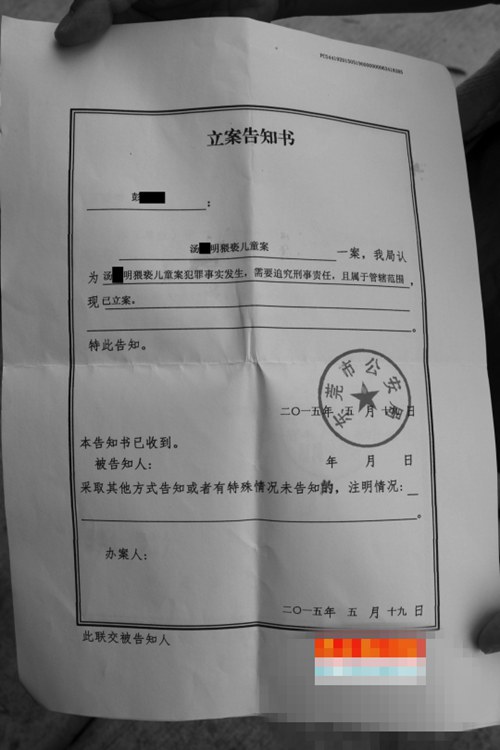 立案告知书
彭
：
汤 明猥亵儿童案 一案，我局认
为 汤 明猥亵儿童案犯罪事实发生，需要追究刑事责任，且属于管辖范围，
现 已立案。
。
特此告知。
东莞市公安局
二〇一五年 五 月 十 日
本告知书已收到。
被告知人： 年 月 日
采取其他方式告知或者有特殊情况未告知的，注明情况：
。
办案人：
二〇一五年 五 月 十九 日
此联交被告知人